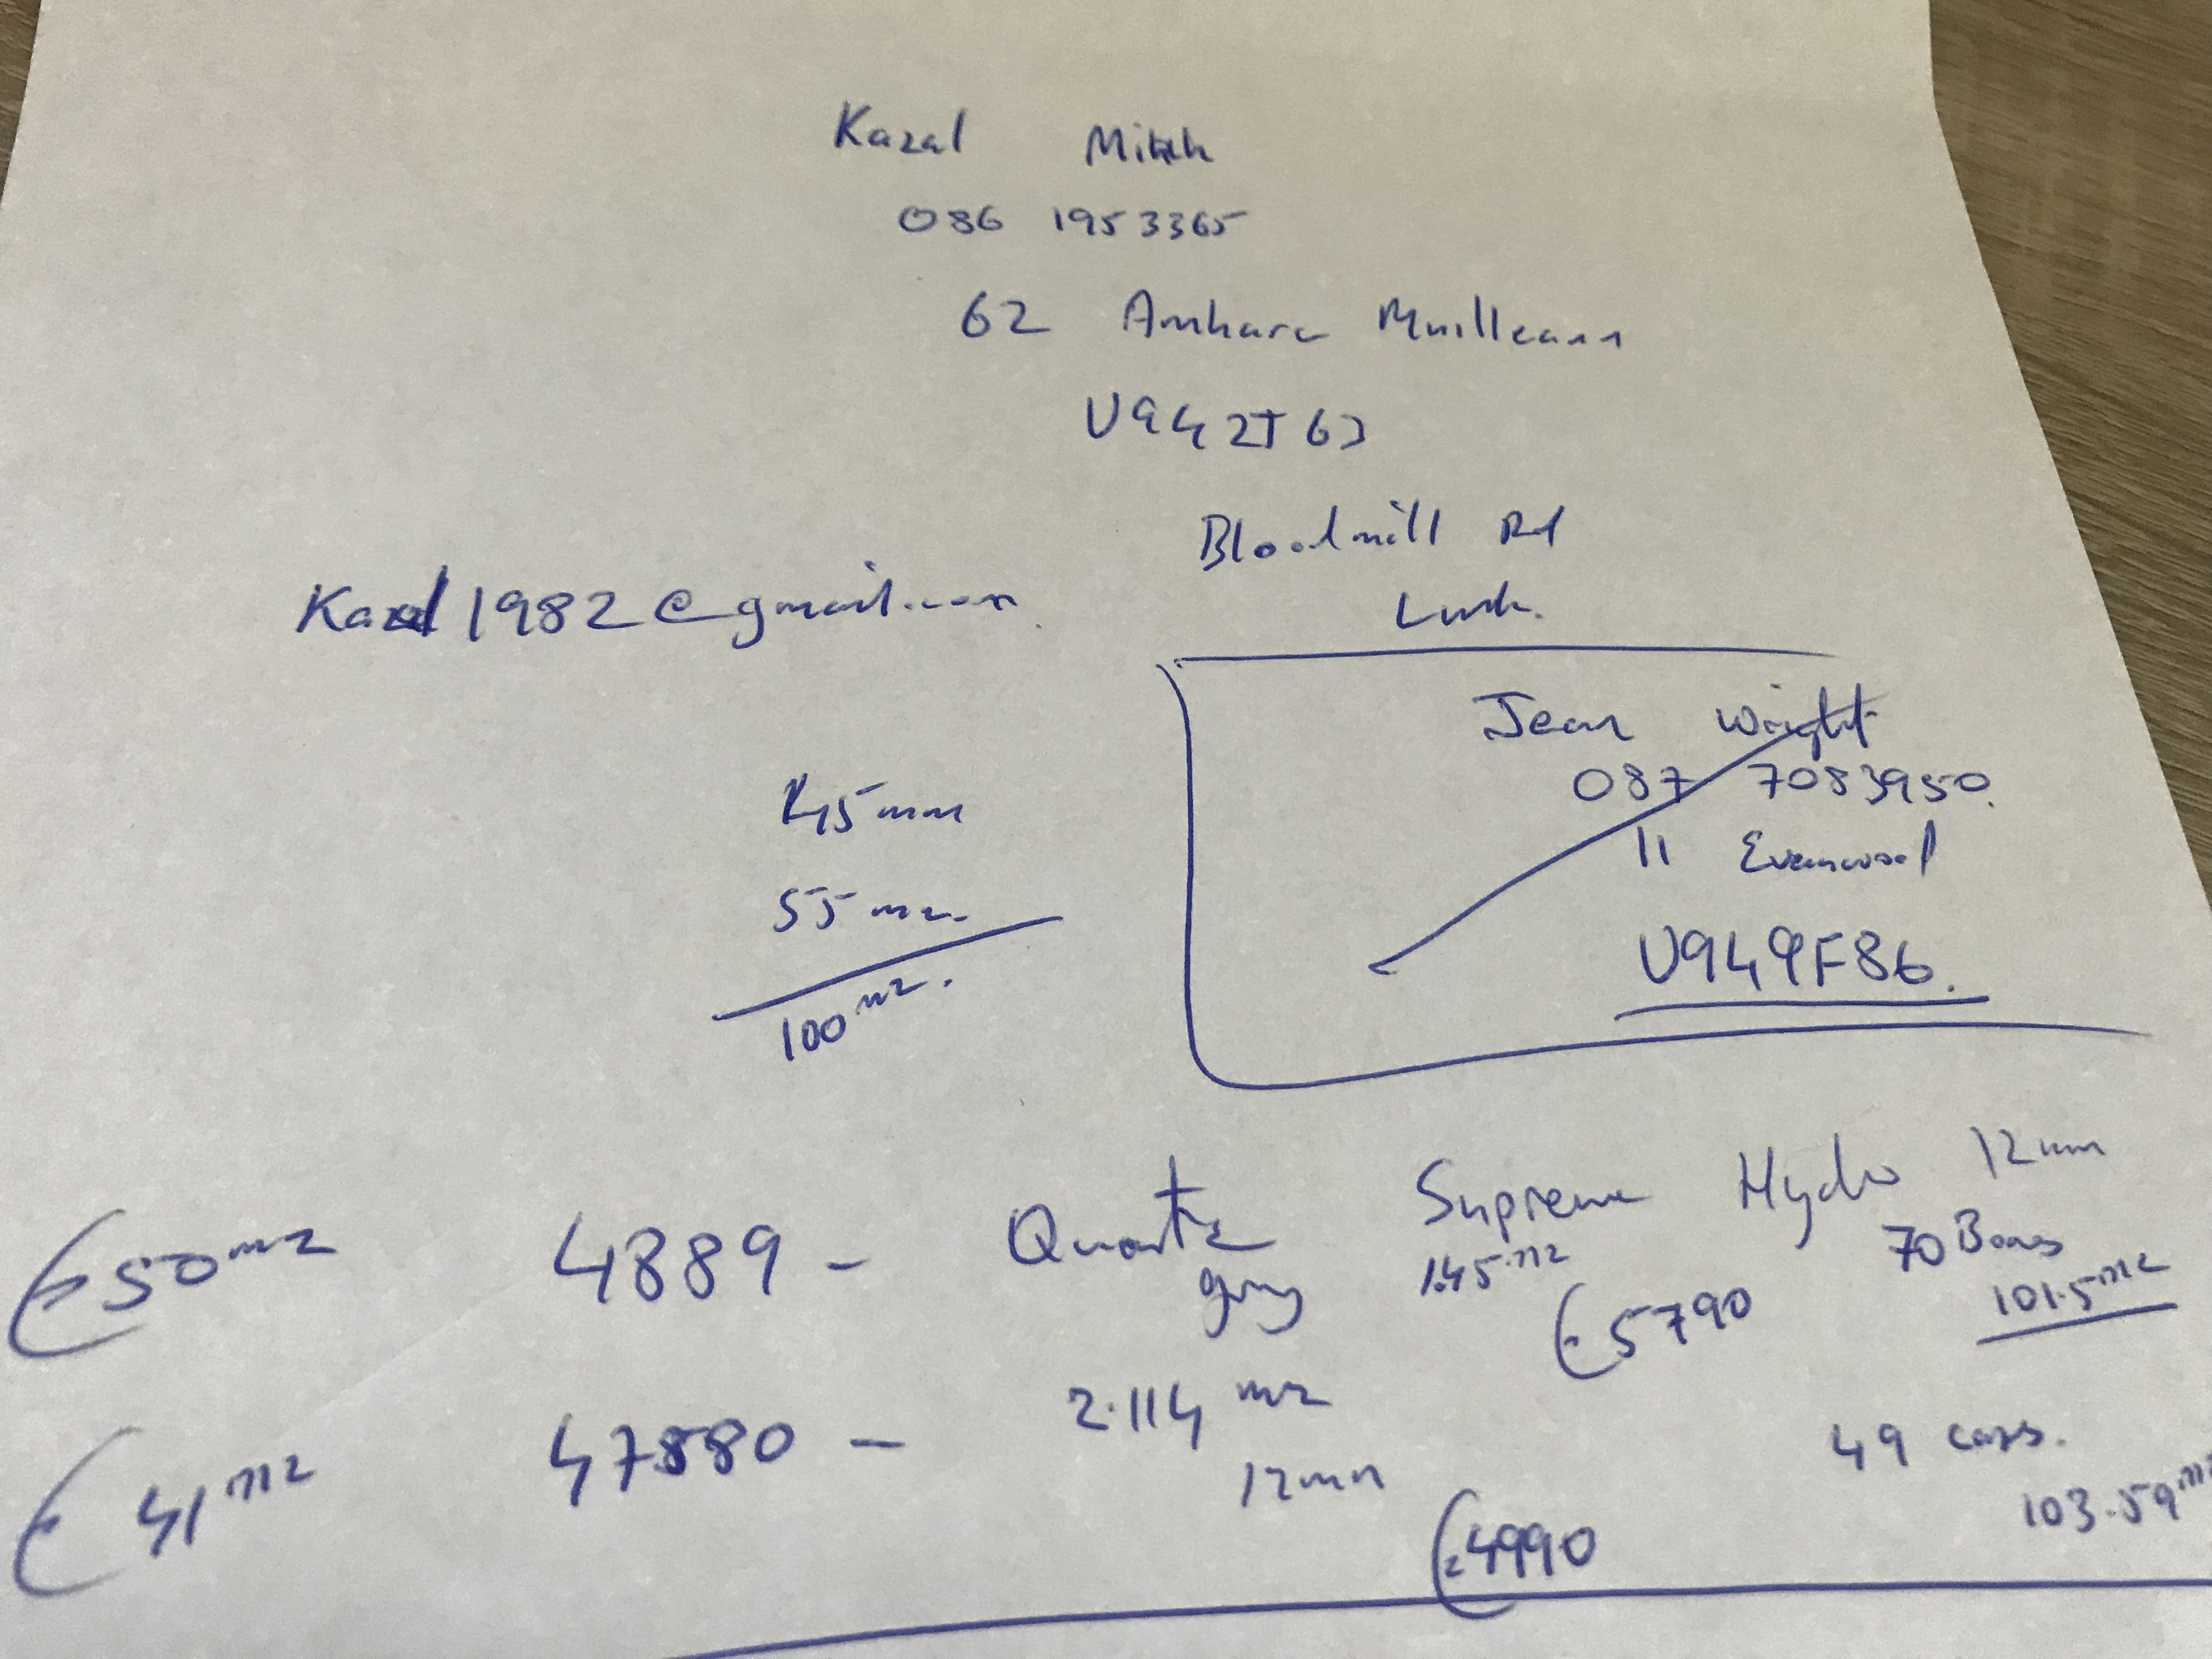 Kazal
086 1953365
62 Amhare Muilleann
U942T63
Bloodmill Rd
Kazal1982@gmail.com
Lusk.
Jean Wright
087 7083950.
45 mm
11 Evanwood
55 m2.
U949F86.
100 m2.
Supreme Hydro 12mm
€50 m2 4889 - Quartz 1.45 m2 70 Boxes
grey €5790 101.5 m2
€41 m2 47880 - 2.114 m2 49
12mm 103.59 m2
€4990